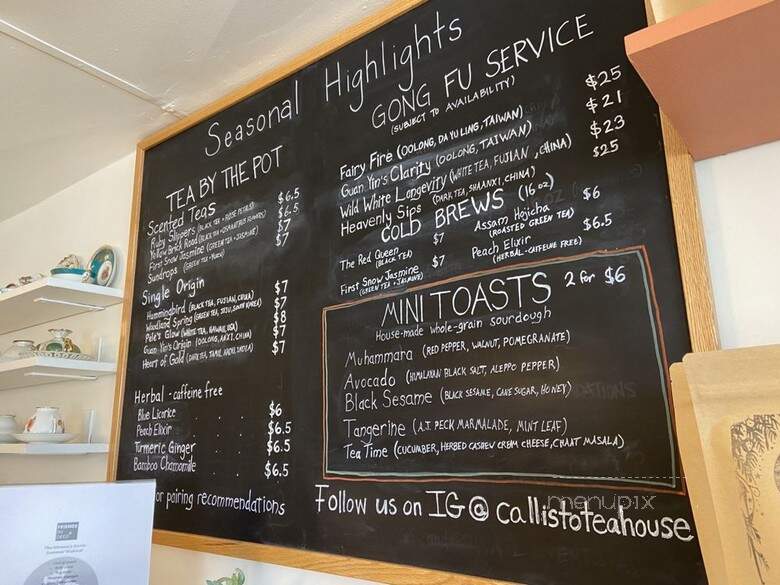 Seasonal Highlights
TEA BY THE POT
Scented Teas
Ruby Slippers (BLACK TEA + ROSE PETALS) $6.5
Yellow Brick Road (BLACK TEA + OSMANTHUS FLOWERS) $6.5
First Snow Jasmine (GREEN TEA + JASMINE) $7
Sundrops (GREEN TEA + YUZU) $7
Single Origin
Hummingbird (BLACK TEA, FUJIAN, CHINA) $7
Woodland Spring (GREEN TEA, JEJU, SOUTH KOREA) $7
Pele's Glow (WHITE TEA, HAWAII, USA) $8
Guan Yin's Origin (OOLONG, ANXI, CHINA) $7
Heart of Gold (DARK TEA, TAMIL NADU, INDIA) $7
Herbal - caffeine free
Blue Licorice . . . $6
Peach Elixir . . . $6.5
Turmeric Ginger . . . $6.5
Bamboo Chamomile . . $6.5
or pairing recommendations
GONG FU SERVICE
(SUBJECT TO AVAILABILITY)
Fairy Fire (OOLONG, DA YU LING, TAIWAN) $25
Guan Yin's Clarity (OOLONG, TAIWAN) $21
Wild White Longevity (WHITE TEA, FUJIAN, CHINA) $23
Heavenly Sips (DARK TEA, SHAANXI, CHINA) $25
COLD BREWS (16 oz)
The Red Queen $7
(BLACK TEA)
First Snow Jasmine $7
(GREEN TEA + JASMINE)
Assam Hojicha $6
(ROASTED GREEN TEA)
Peach Elixir $6.5
(HERBAL - CAFFEINE FREE)
MINI TOASTS 2 for $6
House-made whole-grain sourdough
Muhammara (RED PEPPER, WALNUT, POMEGRANATE)
Avocado (HIMALAYAN BLACK SALT, ALEPPO PEPPER)
Black Sesame (BLACK SESAME, CANE SUGAR, HONEY)
Tangerine (A.J. PECK MARMALADE, MINT LEAF)
Tea Time (CUCUMBER, HERBED CASHEW CREAM CHEESE, CHAAT MASALA)
Follow us on IG @ callistoteahouse
menupix